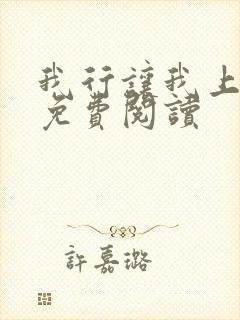 我行讓我上
免費閱讀
許嘉璐